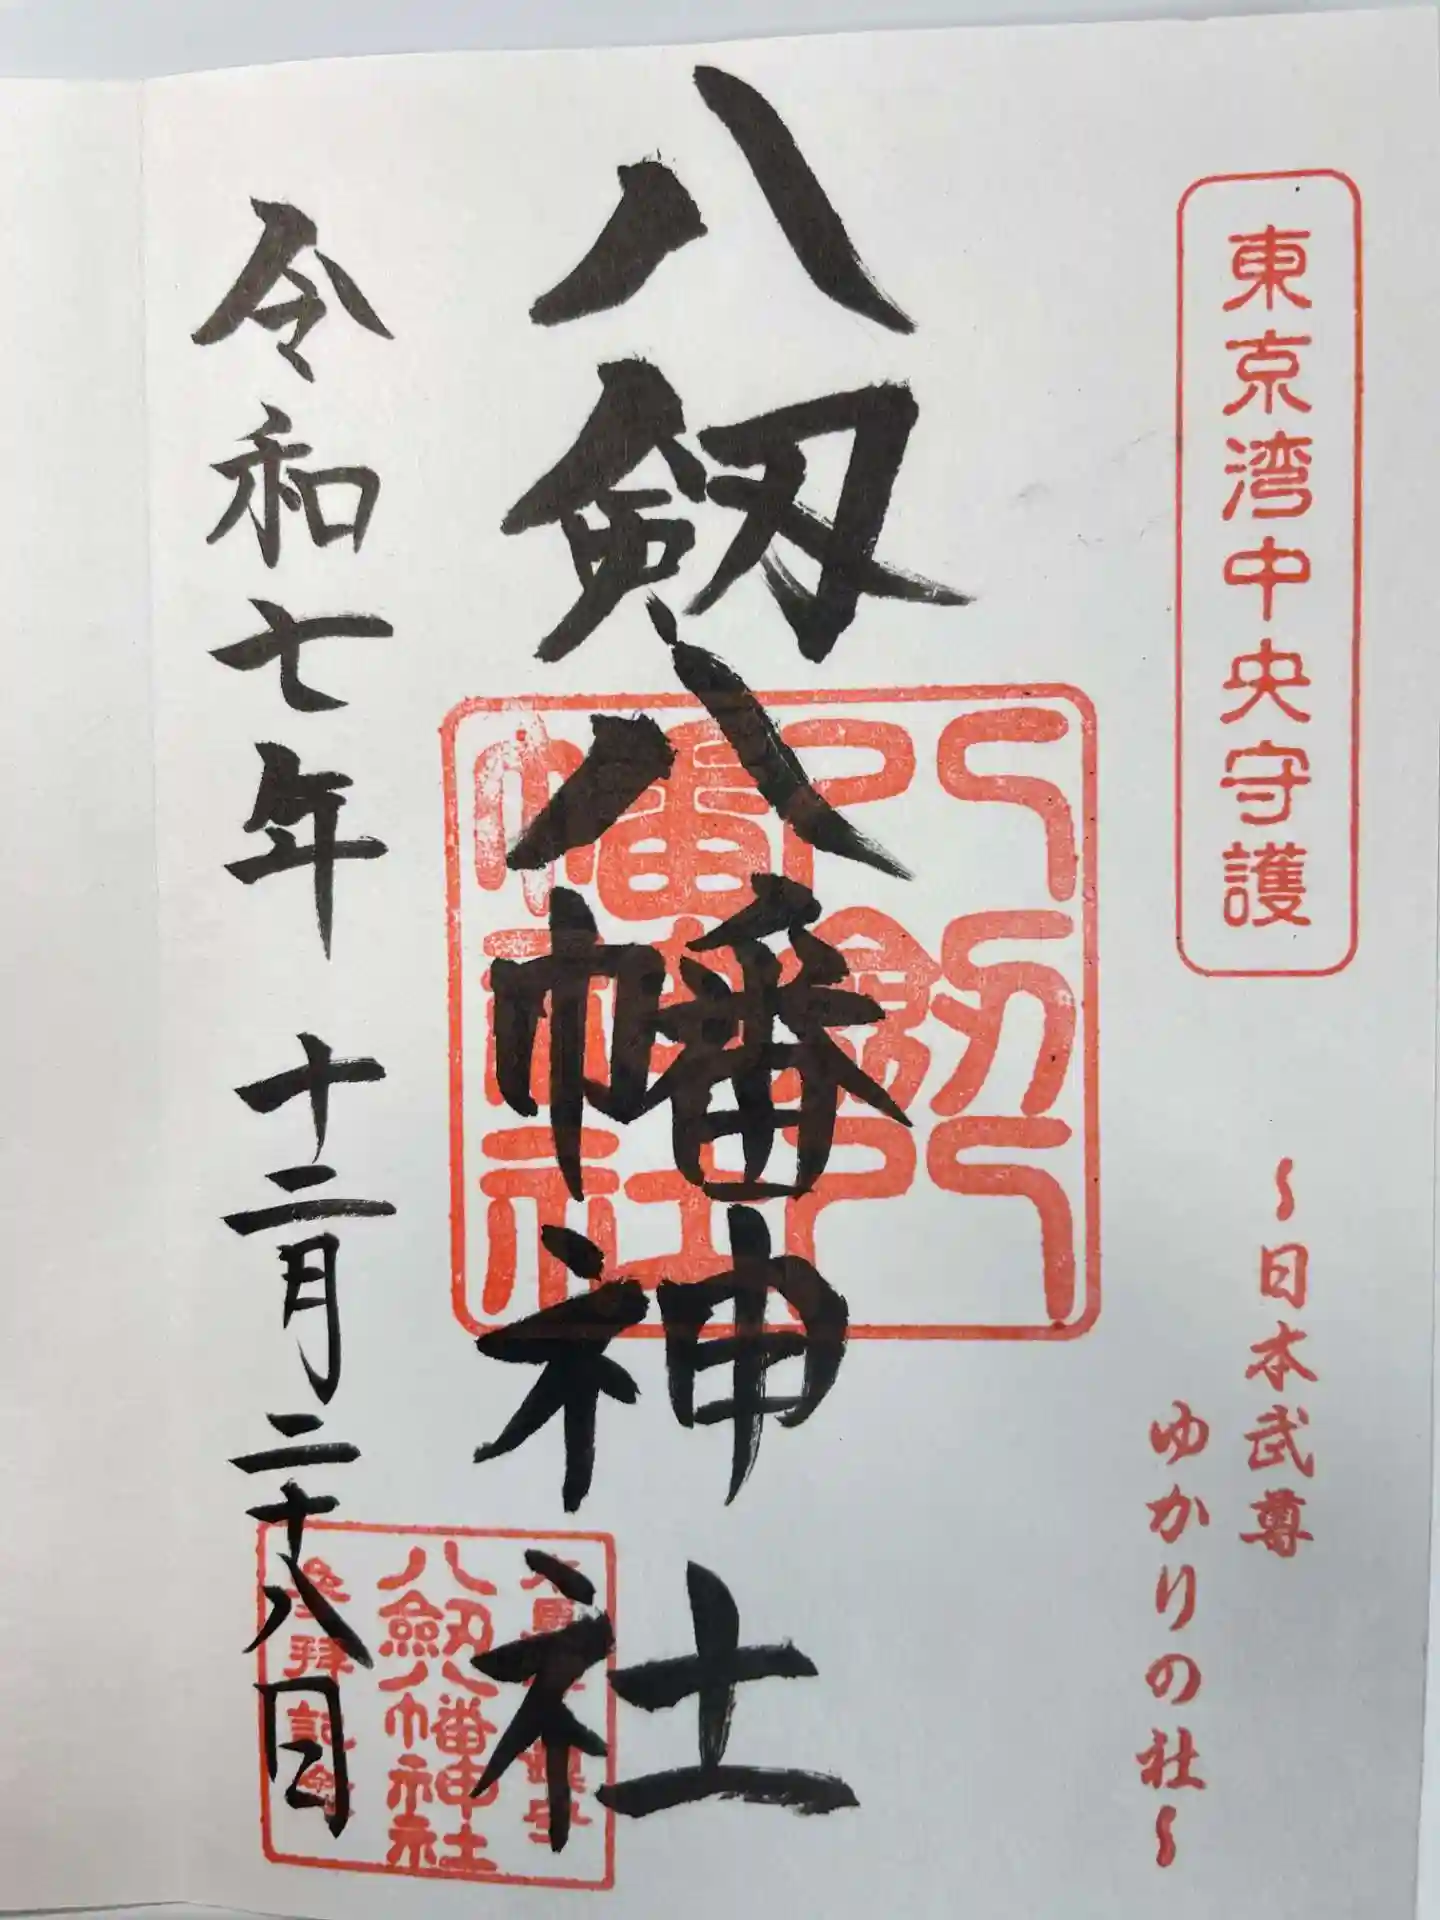 東京湾中央守護
～日本武尊
ゆかりの社～
八剱八幡神社
八剱八幡神社
八剱八幡神社
参拝記念
令和七年 十二月二十八日